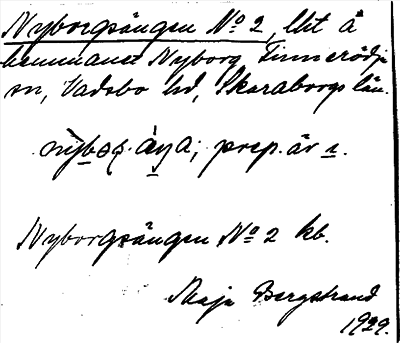 Nyborgsängen No 2, lht å
hemmanet Nyborg, Finnerödja
sn, Vadsbo hd, Skaraborgs län.
prep. är ı.
Nyborgsängen No 2 kb.
Maja Bergstrand
1929.